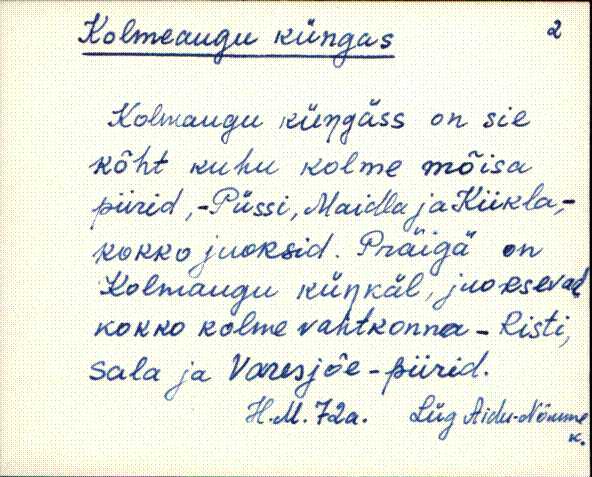 Kolmeaugu küngas 2
Kolmaugu küŋgäss on sie
kõht kuhu kolme mõisa
piirid, - Püssi, Maidla ja Kiikla, -
kokko juoksid. Präigä on
Kolmaugu küŋkäl, juoksevad
kokko kolme vahtkonna - Risti,
Sala ja Varesjõe - piirid.
H.M. 72a. Lüg Aidu-Nõmme
k.